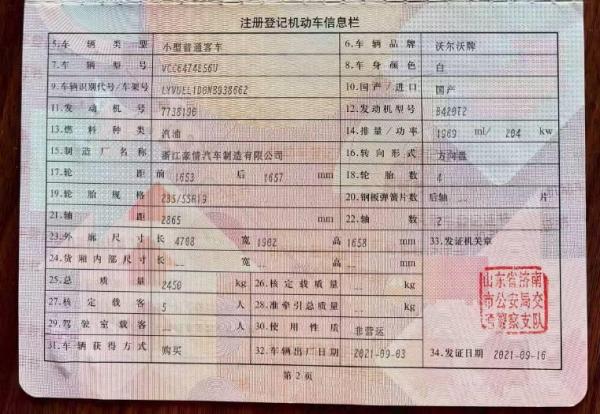 注册登记机动车信息栏
5.车辆类型 小型普通客车 6.车辆品牌 沃尔沃牌
7.车辆型号 VCC6474E56U 8.车身颜色 白
9.车辆识别代号/车架号 10.国产/进口 国产
11.发动机号 12.发动机型号 B420T2
13.燃料种类 汽油 14.排量/功率 1969 ml/ 204 kw
15.制造厂名称 浙江豪情汽车制造有限公司 16.转向形式 方向盘
17.轮距 前 1653 后 1657 mm 18.轮胎数 4
19.轮胎规格 235/55R19 20.钢板弹簧片数 后轴 -- 片
21.轴距 2865 mm 22.轴数 2
23.外廓尺寸 长 4708 宽 1902 高 1658 mm 33.发证机关章
24.货厢内部尺寸 长 -- 宽 -- 高 -- mm
25.总质量 2450 kg 26.核定载质量 -- kg
27.核定载客 5 人 28.准牵引总质量 -- kg
29.驾驶室载客 -- 人 30.使用性质 非营运
山东省济南
市公安局交
警察支队
31.车辆获得方式 购买 32.车辆出厂日期 2021-09-03 34.发证日期 2021-09-16
第2页